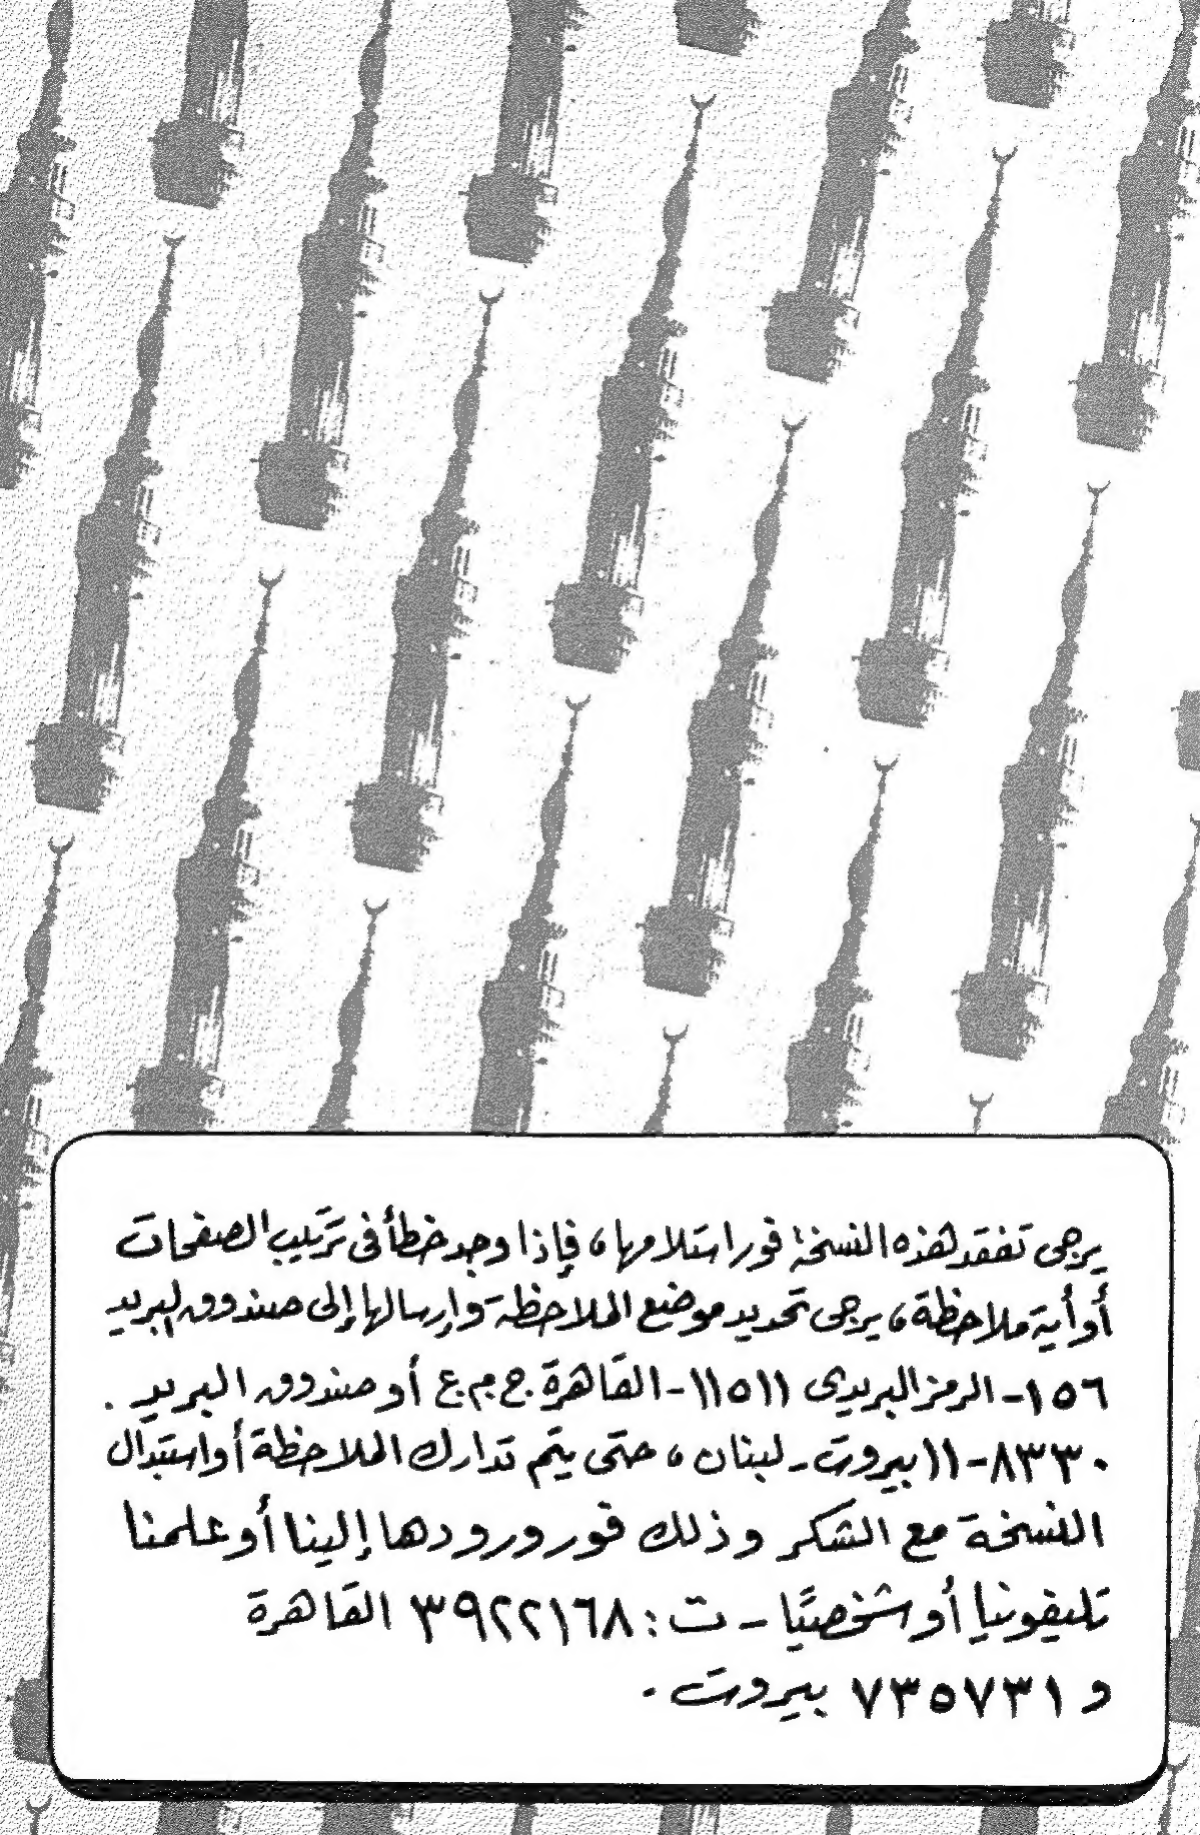 يرجى تفقد هذه النسخة فور استلامها، فإذا وجد خطأ فى ترتيب الصفحات
أو أية ملاحظة، يرجى تحديد موضع الملاحظة وإرسالها إلى صندوق البريد
١٥٦ - الرمز البريدى ١١٥١١ - القاهرة ج.م.ع أو صندوق البريد .
٨٣٣٠ - ١١ بيروت - لبنان ، حتى يتم تدارك الملاحظة أو استبدال
النسخة مع الشكر وذلك فور ورودها إلينا أو علمنا
تليفونيا أو شخصيًا - ت : ٣٩٢٢١٦٨ القاهرة
و ٧٣٥٧٣١ بيروت .